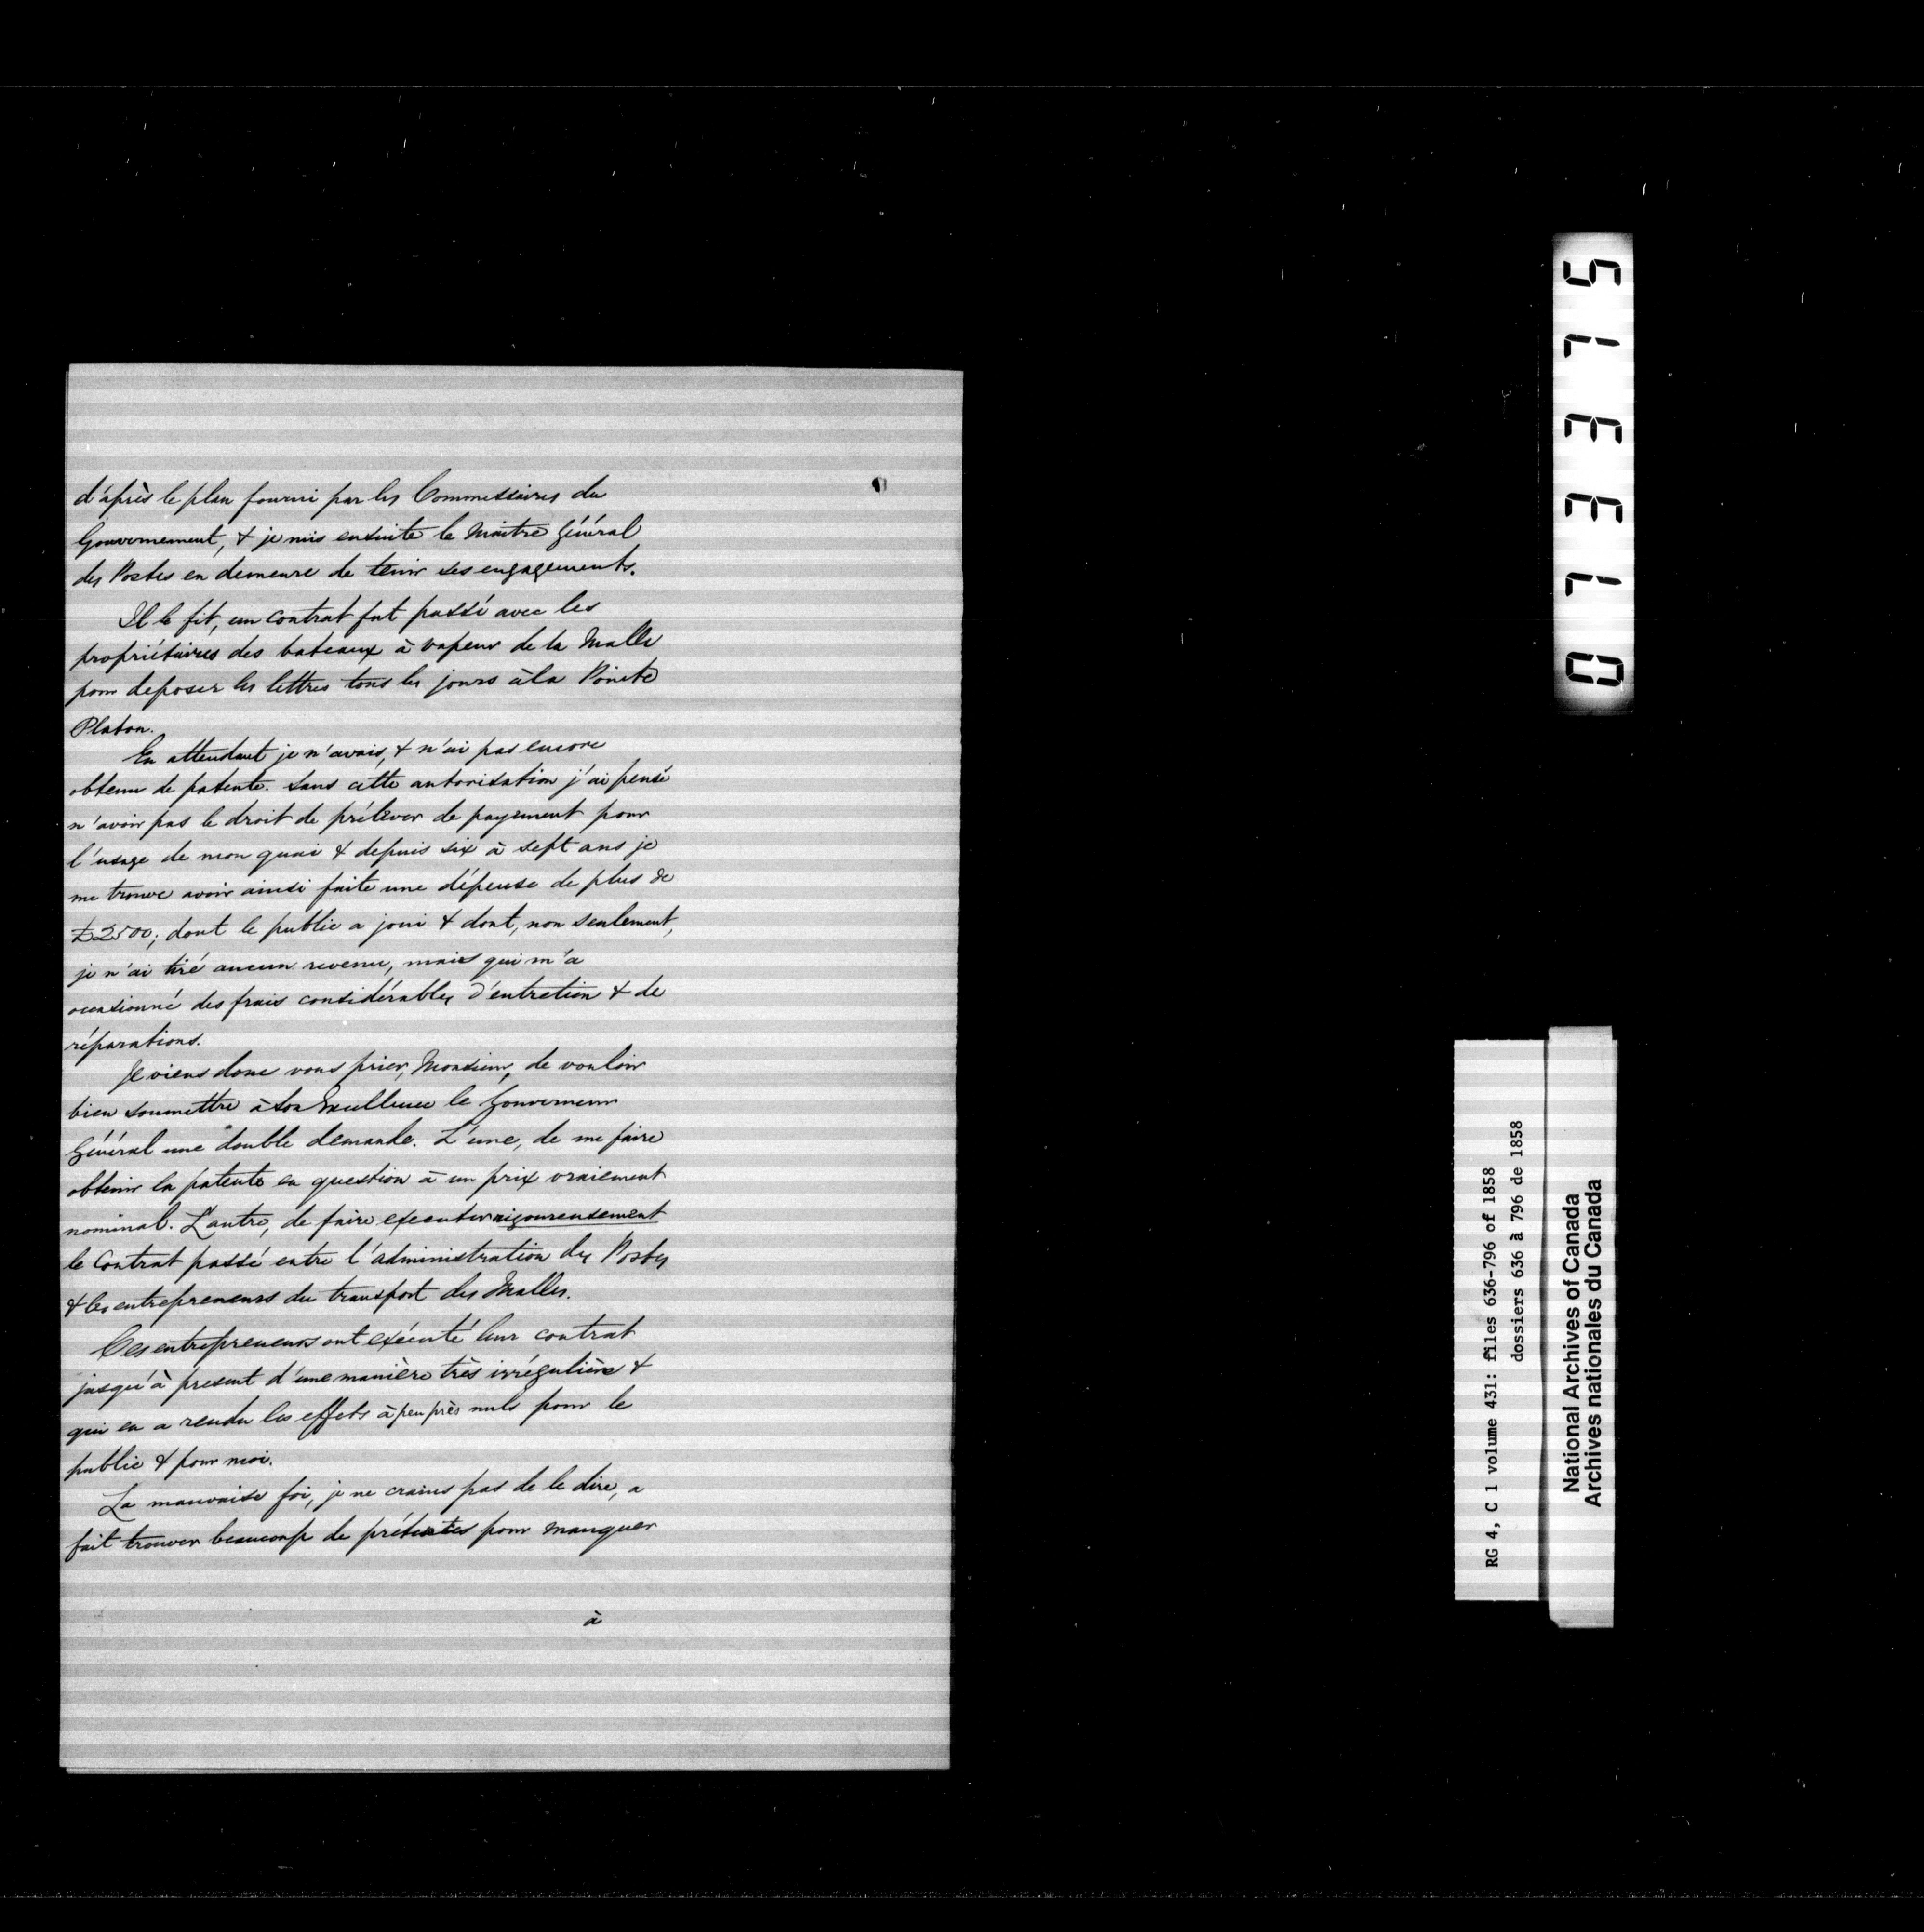 d'après le plan fourni par les Commissaires du
Gouvernement, & je mis ensuite le Maitre Général
des Postes en demeure de tenir ses engagements.
Il le fit, un contrat fut passé avec les
propriétaires des bateaux à vapeur de la Malle
pour deposer les lettres tous les jours à la Pointe
Platon.
En attendant je n'avais, & n'ai pas encore
obtenu de patente. Sans cette autorisation j'ai pensé
n'avoir pas le droit de prélever de payement pour
l'usage de mon quai & depuis six à sept ans je
me trouve avoir ainsi faite une dépense de plus de
£2500; dont le public a joui & dont, non seulement,
je n'ai tiré aucun revenu, mais qui m'a
occasionné des frais considérables d'entretien & de
réparations.
Je viens donc vous prier, Monsieur, de vouloir
bien soumettre à Son Excellence le Gouverneur
Général une double demande. L'une, de me faire
obtenir la patente en question à un prix vraiement
nominal. L'autre, de faire executer rigoureusement
le Contrat passé entre l'administration des Postes
& les entrepreneurs du transport des Malles.
Ces entrepreneurs ont exécuté leur contrat
jusqu'à présent d'une manière très irrégulière &
qui en a rendu les effets à peu près nuls pour le
public & pour moi.
La mauvaise foi, je ne crains pas de le dire, a
fait trouver beaucoup de prétextes pour manquer
à
07335
RG 4, C 1 volume 431: files 636-796 of 1858
dossiers 636 à 796 de 1858
National Archives of Canada
Archives nationales du Canada